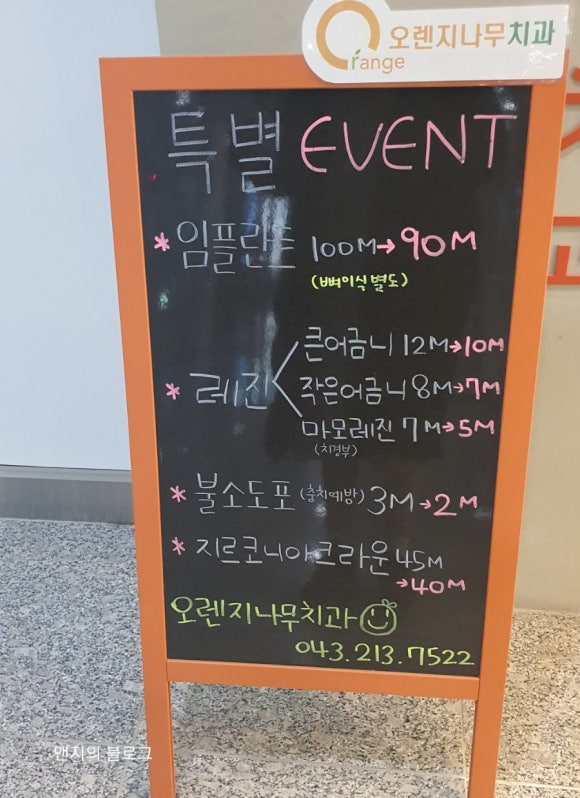 오렌지나무치과
Orange
특별 EVENT
* 임플란트 100M→90M
(뼈이식 별도)
* 레진 < 큰어금니 12M→10M
작은어금니 8M→7M
마모레진 7M→5M
(치경부)
* 불소도포 (충치예방) 3M→2M
* 지르코니아크라운 45M
→40M
오렌지나무치과
043.213.7522
앤지의 블로그